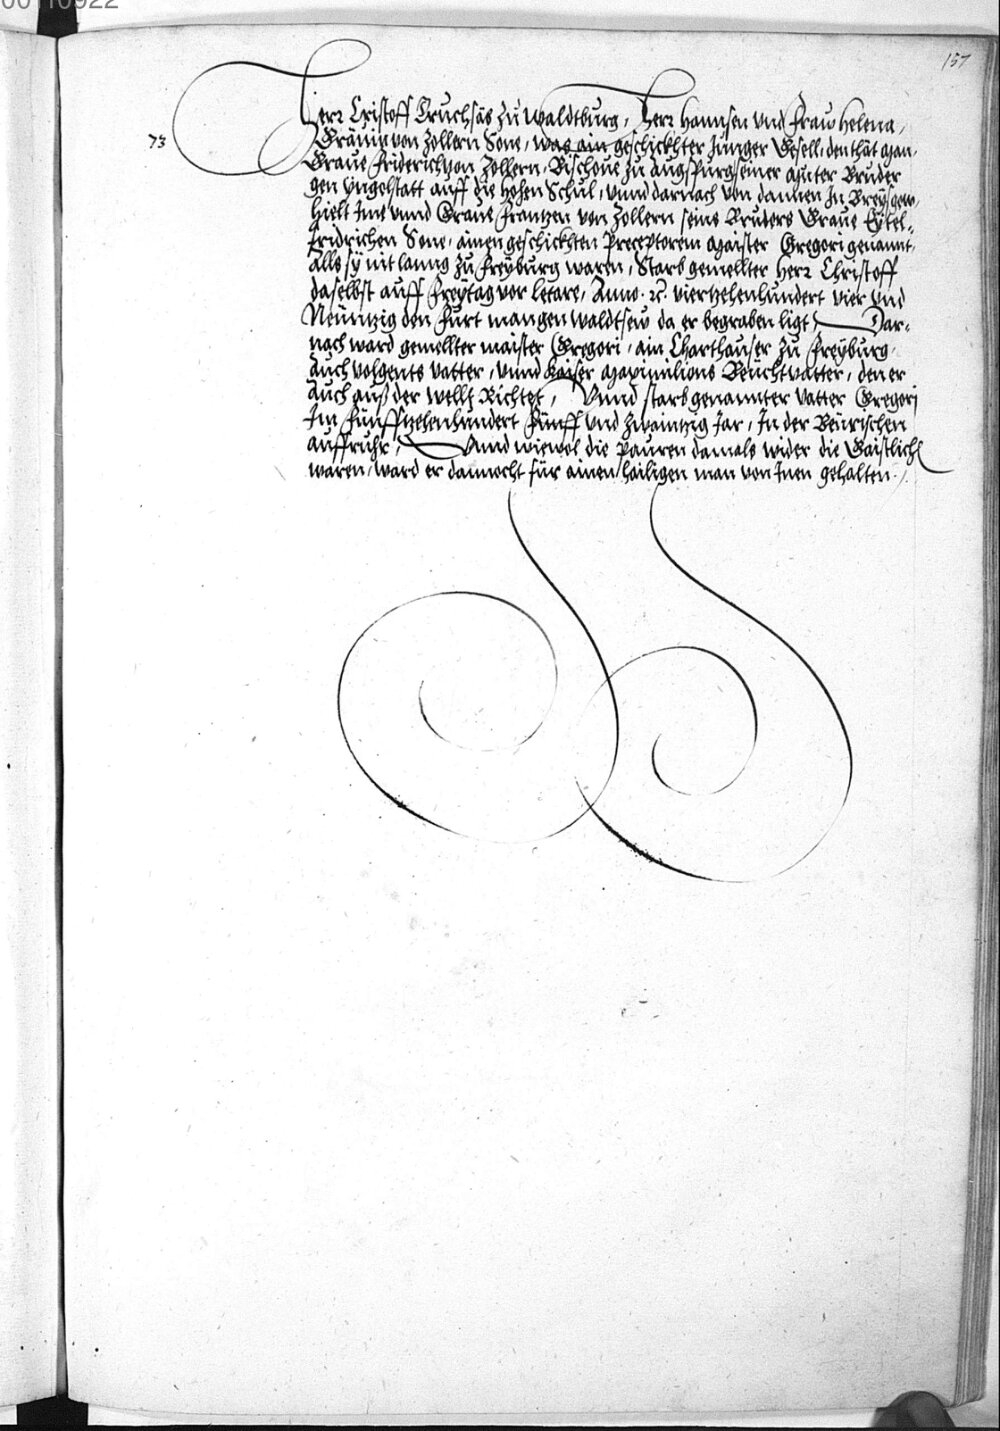 00110922
157
73
Herr Cristoff Truchsäs zu Waldtburg, Herr Hannsen und Fraw Helena,
Grävin von Zollern Sone, was ain geschickhter Junger Gesell, den thät man
Grave Friderich von Zollern, Bischove zu Augspurg seiner Muter Bruder
gen Yngolstatt auff die hohen Schul, unnd darnach von dannen In Breysgew
hielt Ime unnd Grave Frantzen von Zollern seins Bruders Grave Eytel-
fridrichen Sone, ainen geschickhten Preceptorem Maister Gregori genannt,
Alls sy nit lanng zu Freyburg waren, Starb gemellter Herr Christoff
daselbst auff Freytag vor Letare, Anno. rc. viertzehenhundert vier und
Neüntzig den Furt man gen Waldtsew da er begraben ligt, Dar-
nach ward gemellter maister Gregori, ain Charthauser zu Freyburg,
Auch volgents Vatter, unnd Kaiser Maximilions Beücht vatter, den er
Auch auß der wellt Richtet, Unnd starb genannter Vatter Gregori
Im Fünffzehenhundert Fünff und Zwaintzig Jar, In der Beürischen
auffrühr, Unnd wiewol die Pauren damals wider die Gaistlich
waren, ward er dannocht für ainen hailigen man von Inen gehalten.